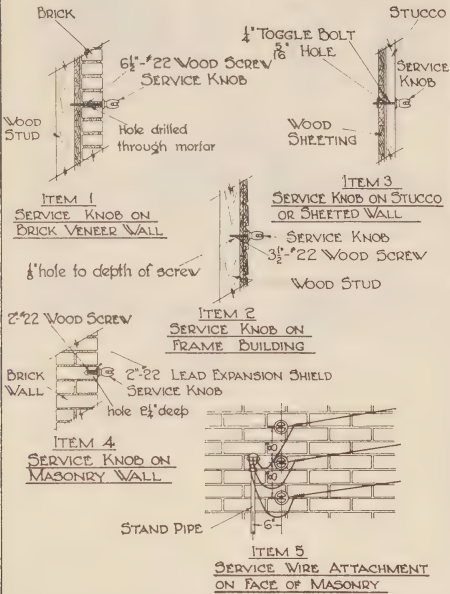 BRICK
6½"-#22 WOOD SCREW
SERVICE KNOB
WOOD
STUD
Hole drilled
through mortar
ITEM 1
SERVICE KNOB ON
BRICK VENEER WALL
STUCCO
¼" TOGGLE BOLT
5/16" HOLE
SERVICE
KNOB
WOOD
SHEETING
ITEM 3
SERVICE KNOB ON STUCCO
OR SHEETED WALL
SERVICE KNOB
3½"-#22 WOOD SCREW
⅛" hole to depth of screw
WOOD STUD
ITEM 2
SERVICE KNOB ON
FRAME BUILDING
2"-#22 WOOD SCREW
BRICK
WALL
2"-22 LEAD EXPANSION SHIELD
SERVICE KNOB
hole 2¼" deep
ITEM 4
SERVICE KNOB ON
MASONRY WALL
8"
8"
STAND PIPE
6"
ITEM 5
SERVICE WIRE ATTACHMENT
ON FACE OF MASONRY